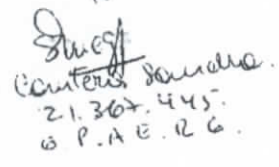 Canteros Sandra.
21.367.445.
P.A E.R G.